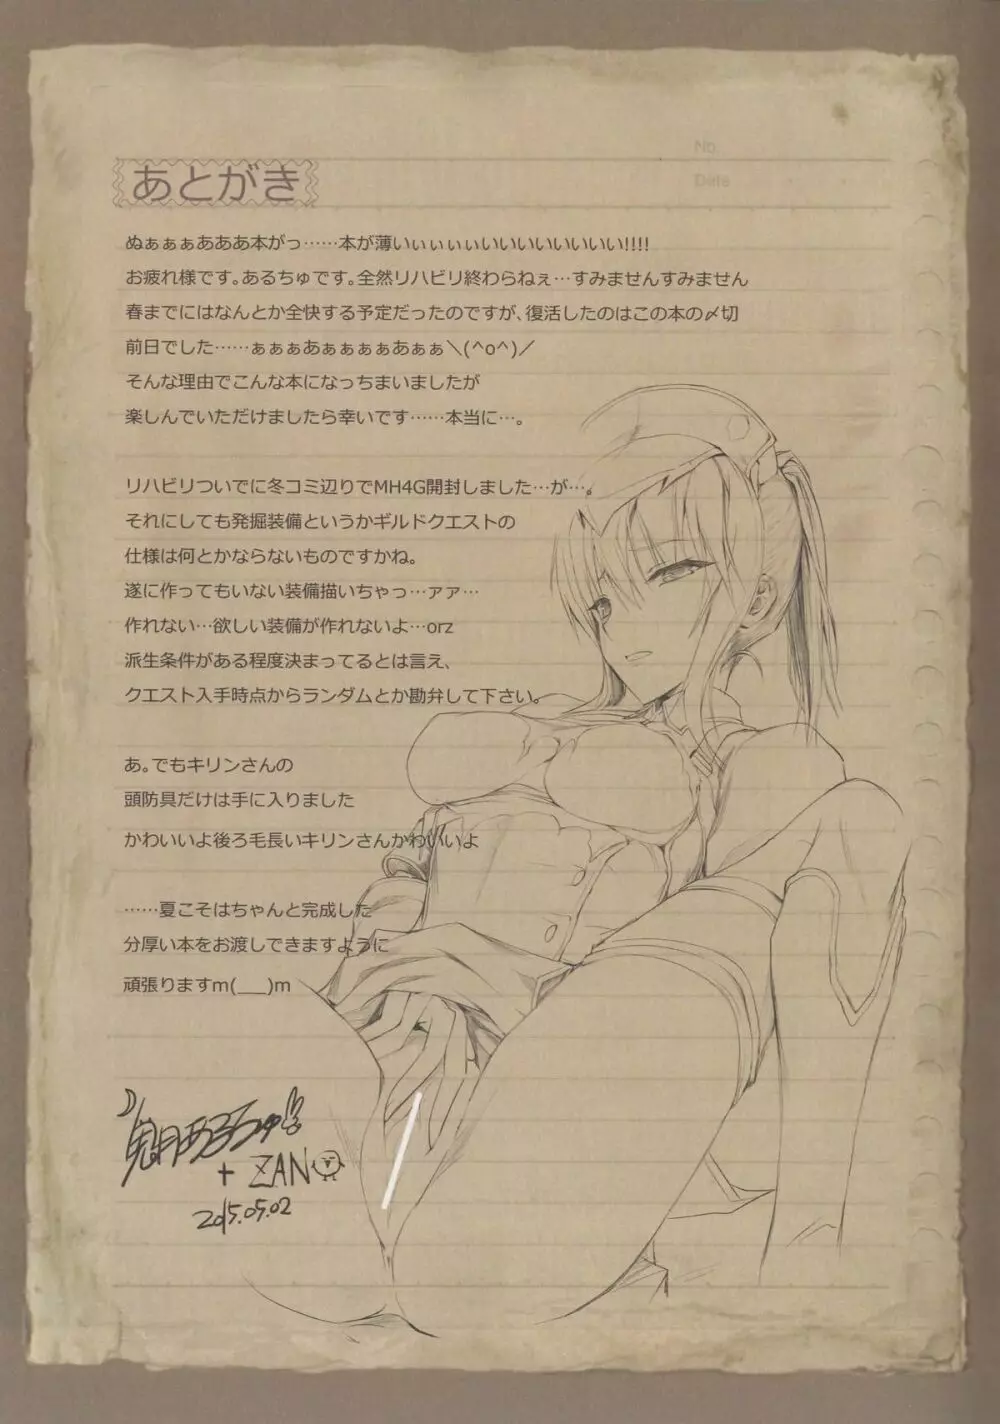 No.
Date
あとがき
ぬぁぁぁあああ本がっ……本が薄いぃぃぃぃいいいいいいいい!!!!
お疲れ様です。あるちゅです。全然リハビリ終わらねぇ…すみませんすみません
春までにはなんとか全快する予定だったのですが、復活したのはこの本の〆切
前日でした……ぁぁぁあぁぁぁぁあぁぁ＼(^o^)／
そんな理由でこんな本になっちまいましたが
楽しんでいただけましたら幸いです……本当に…。
リハビリついでに冬コミ辺りでMH4G開封しました…が…。
それにしても発掘装備というかギルドクエストの
仕様は何とかならないものですかね。
遂に作ってもいない装備描いちゃっ…ァァ…
作れない…欲しい装備が作れないよ…orz
派生条件がある程度決まってるとは言え、
クエスト入手時点からランダムとか勘弁して下さい。
あ。でもキリンさんの
頭防具だけは手に入りました
かわいいよ後ろ毛長いキリンさんかわいいよ
……夏こそはちゃんと完成した
分厚い本をお渡しできますように
頑張りますm(___)m
鬼月あるちゅ
+ ZAN
2015.05.02